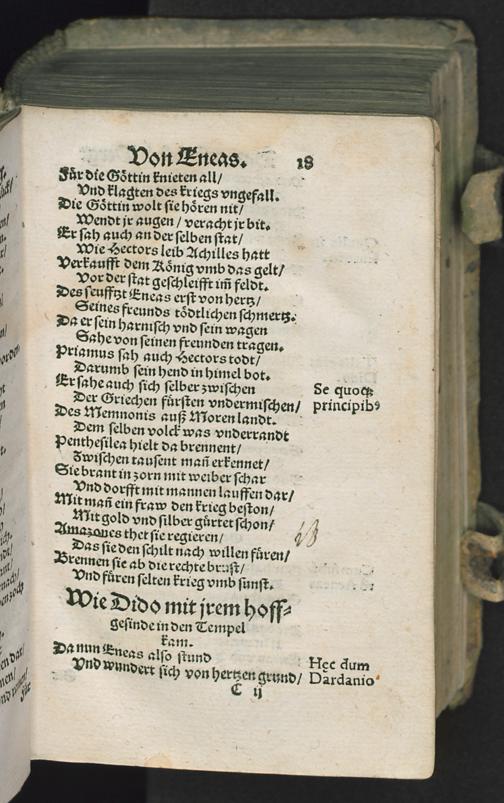 Von Eneas. 18
Für die Göttin knieten all/
Vnd klagten des kriegs vngefall.
Die Göttin wolt sie hören nit/
Wendt jr augen / veracht jr bit.
Er sah auch an der selben stat/
Wie Hectors leib Achilles hatt
Verkaufft dem König vmb das gelt/
Vor der stat geschleifft im̃ feldt.
Des seufftzt Eneas erst von hertz/
Seines freunds tödtlichen schmertz.
Da er sein harnisch vnd sein wagen
Sahe von seinen freunden tragen.
Priamus sah auch Hectors todt/
Darumb sein hend in himel bot.
Er sahe auch sich selber zwischen
Se quoqꝫ
Der Griechen fürsten vndermischen/
principibꝰ
Des Memnonis auß Moren landt.
Dem selben volck was vnderrandt
Penthesilea hielt da brennent/
Zwischen tausent mañ erkennet/
Sie brant in zorn mit weiber schar
Vnd dorfft mit mannen lauffen dar/
Mit mañ ein fraw den krieg beston/
Mit gold vnd silber gürtet schon/
Amazones thet sie regieren/
Das sie den schilt nach willen füren/
Brennen sie ab die rechte brust/
Vnd füren selten krieg vmb sunst.
Wie Dido mit jrem hoff⸗
gesinde in den Tempel
kam.
Da nun Eneas also stund
Hęc dum
Vnd wundert sich von hertzen grund/
Dardanio
C ij